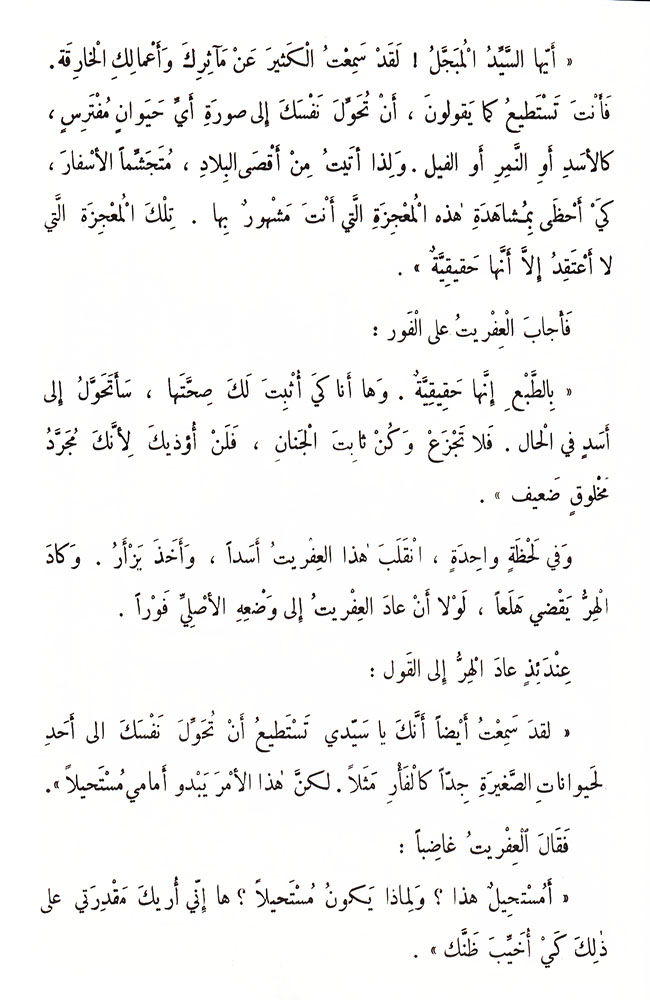 « أَيّها السَّيِّدُ الْمُبَجَّلُ ! لَقَدْ سَمِعْتُ الْكَثيرَ عَنْ مَآثِرِكَ وَأَعْمالِكِ الْخارِقَة.
فَأَنْتَ تَسْتَطيعُ كما يَقولونَ ، أَنْ تُحَوِّلَ نَفْسَكَ إلى صورَةِ أَيِّ حَيَوانٍ مُفْتَرِسٍ ،
كالأسَدِ أَوِ النَّمِرِ أَو الفيل . وَلِذا أتَيْتُ مِنْ أَقْصَى البِلادِ ، مُتَجَشِّماً الأسْفارَ ،
كَيْ أَحْظَى بِمُشاهَدَةِ هٰذه الْمُعْجِزَةِ الَّتي أَنْتَ مَشْهورٌ بِها . تِلْكَ الْمُعْجِزَة الَّتي
لا أَعْتَقِدُ إلاَّ أَنَّها حَقيقِيَّةٌ » .
فَأَجابَ الْعِفْريتُ على الْفَور :
« بِالطَّبْعِ إِنَّها حَقِيقِيَّةٌ . وَها أَنا كَيَ أُثْبِتَ لَكَ صِحَّتَها ، سَأَتَحَوَّلُ إلى
أَسَدٍ في الْحال . فَلا تَجْزَعْ وَكُنْ ثابِتَ الْجَنانِ ، فَلَنْ أُؤذيكَ لِأَنَّكَ مُجَرَّدُ
مَخْلوقٍ ضَعيف » .
وَفي لَحْظَةٍ واحِدَةٍ ، انْقَلَبَ هٰذا العِفْريتُ أَسَداً ، وَأَخَذَ يَزْأَرُ . وَكادَ
الْهِرُّ يَقْضي هَلَعاً ، لَوْلا أَنْ عادَ العِفْريتُ إلى وَضْعِهِ الأصْلِيِّ فَوْراً .
عِنْدَئِذٍ عادَ الْهِرُّ إِلى القَول :
« لقدَ سَمِعْتُ أَيْضاً أَنَّكَ يا سَيّدي تَسْتَطيعُ أَنْ تُحَوِّلَ نَفْسَكَ الى أَحَدِ
لَحيواناتِ الصَّغيرَةِ جِدّاً كالْفَأْرِ مَثَلاً . لكنَّ هٰذا الأمْرَ يَبْدو أَمامي مُسْتَحيلاً ».
فَقَالَ اَلْعِفْريتُ غاضِباً :
« أَمُسْتحِيلٌ هذا ؟ وَلِماذا يَكونُ مُسْتَحيلاً ؟ ها إنّي أُريكَ مَقْدِرَتي على
ذٰلِكَ كَيْ أُخَيِّبَ ظَنَّك » .